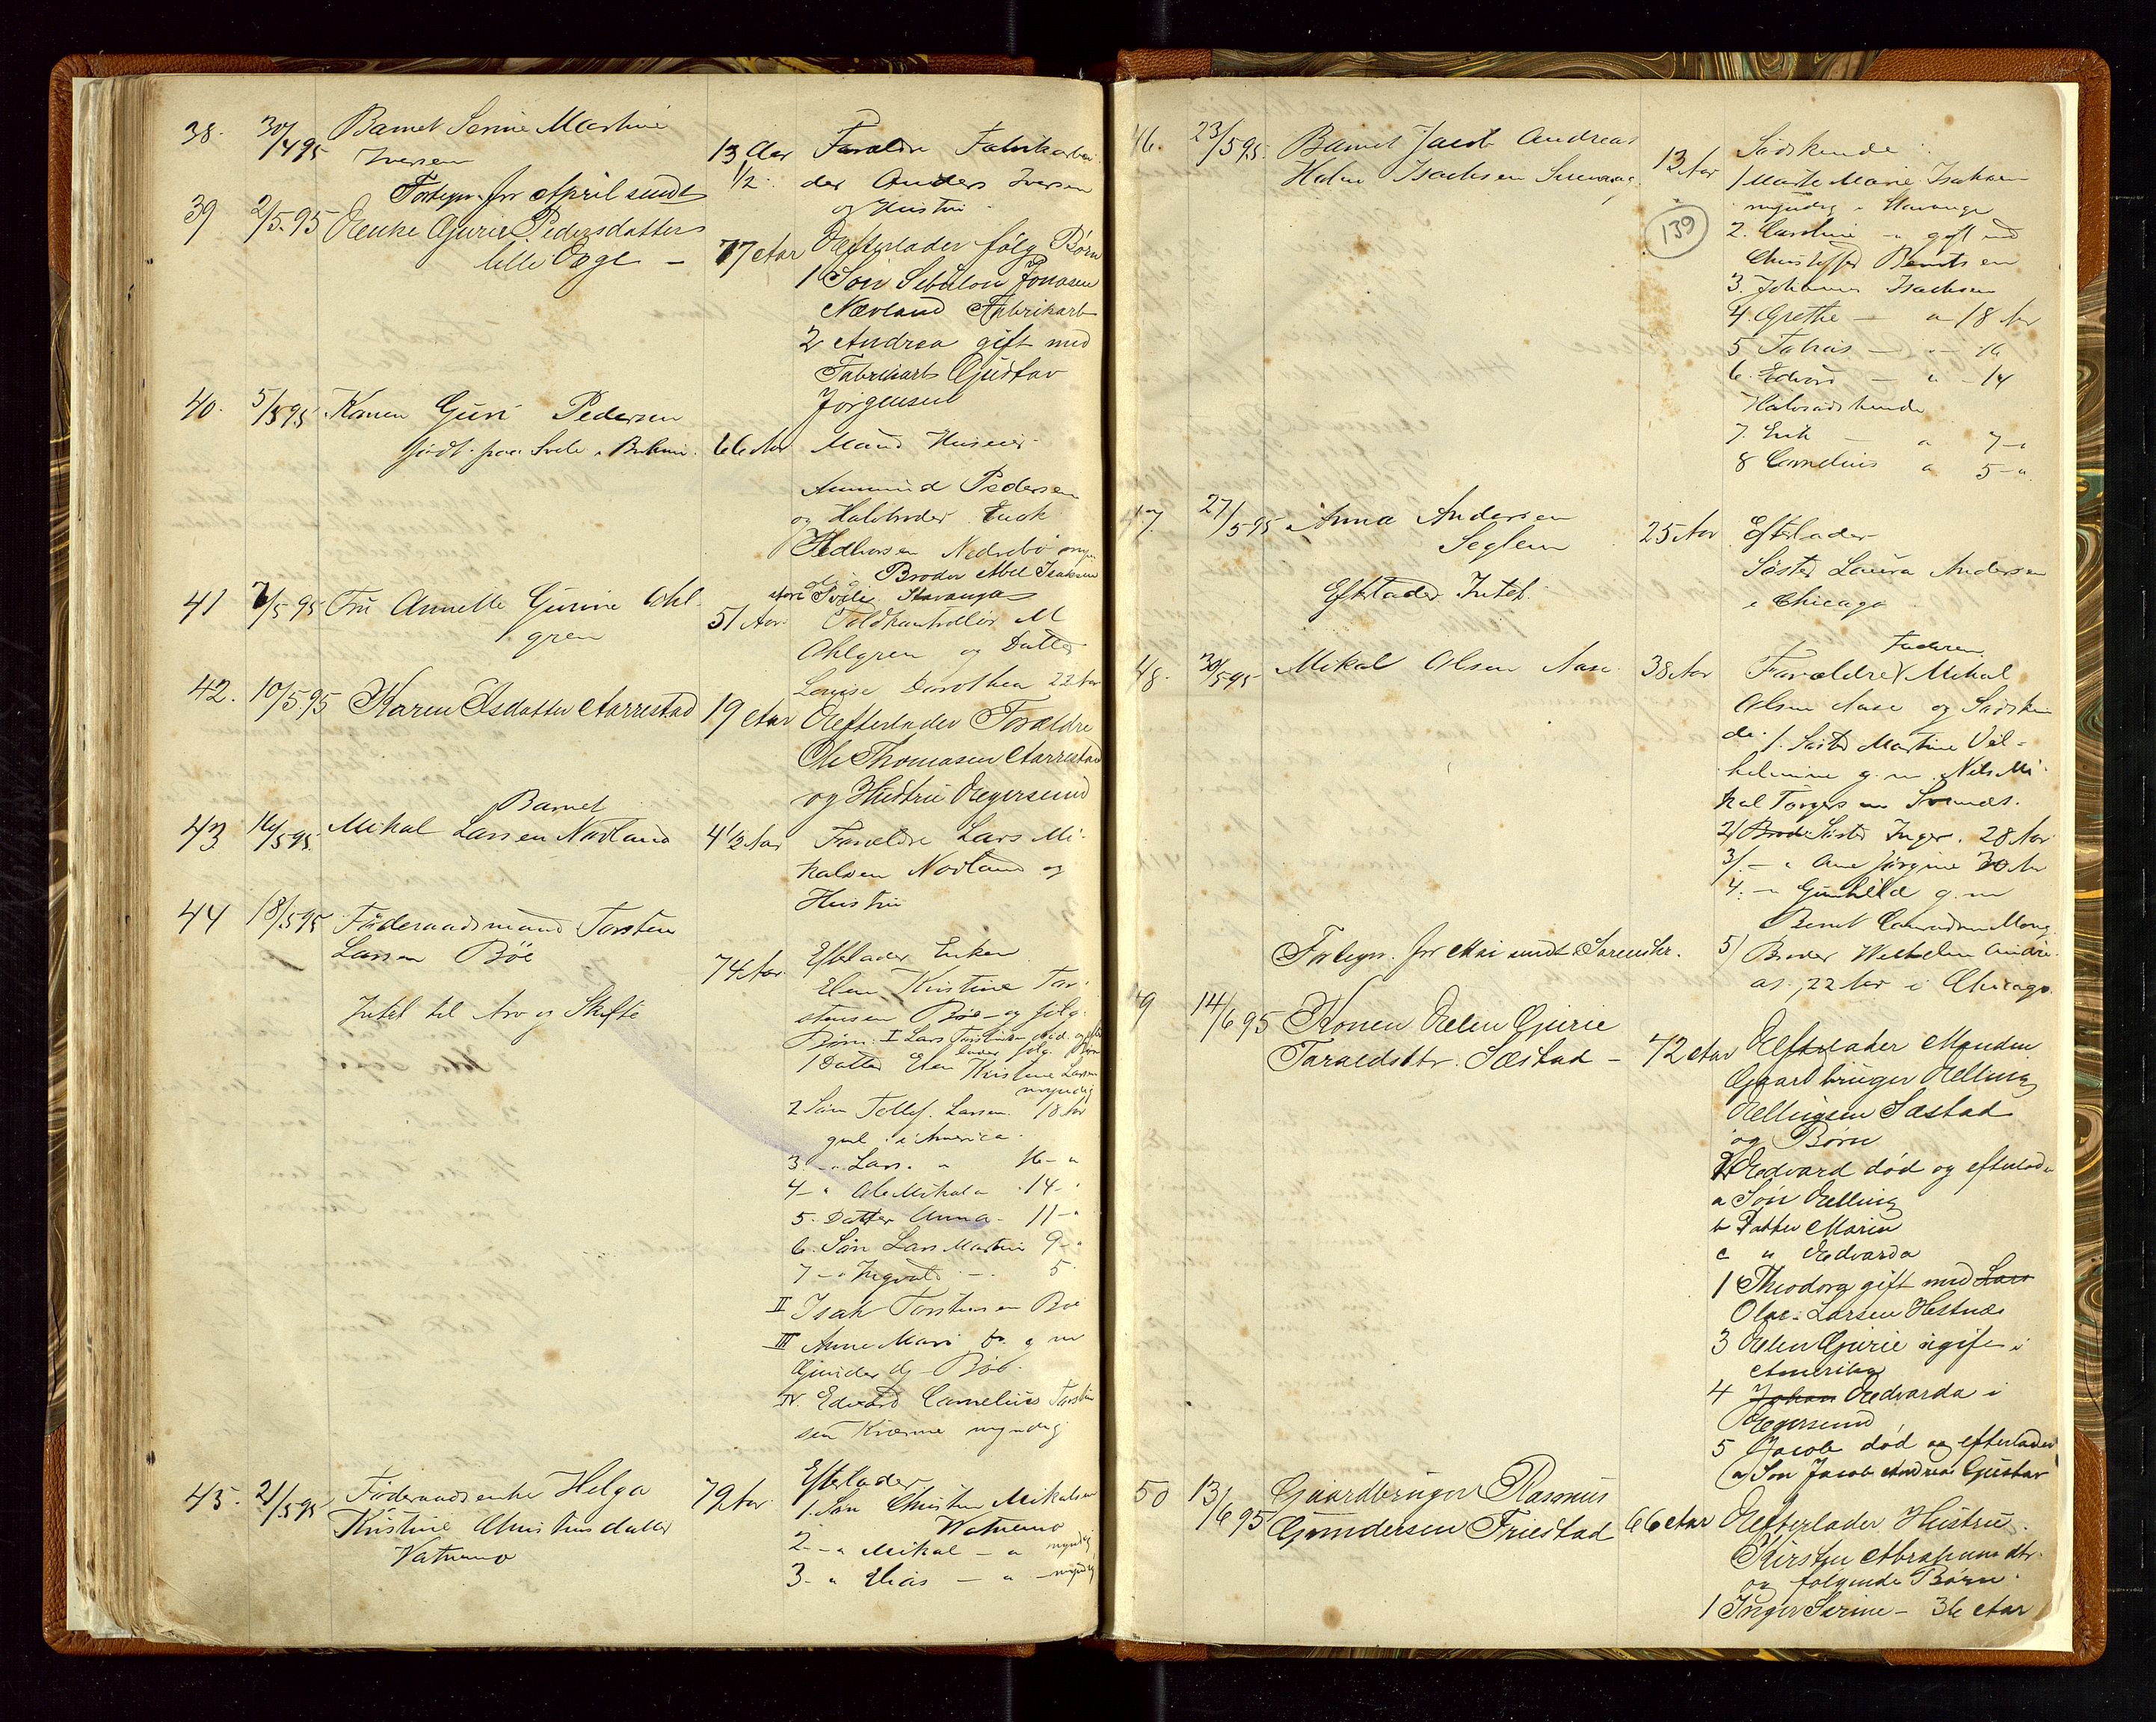 38. 30/4 95 Barnet Serine Martine
Iversen 13 Aar Forældre Fabrikarbei
1/2 der Anders Iversen
og Hustru
Fortegn. for April sendt
39 2/5.95 Gurie Pedersdatter
lille Æge – 77 Aar Efterlader følg Børn
1 Søn Sebulon Jonasen
Nævland Fabrikarb
2 Andrea gift med
Fabrikarb Gustav
Jørgensen
40. 5/5 95 Konen Guri Pedersen
født paa Svele 66 Aar Mand Huseier
Ammund Pedersen
og Halvbroder Enok
Nedrebø
Broder Abel Isaksen
Svele Stavanger
41 7/5 95 Fru Annette Gurine Ahl-
gren 51 Aar Toldkontrollør M
Ahlgren og Datter
Louise Dorothea 22 Aar
42. 10/5.95 Karen Olsdatter Aarrestad 19 Aar Efterlader Forældre
Ole Thomasen Aarrestad
og Hustru Egersund
43 16/5 95. Barnet
Mikal Larsen Nodland 4 1/2 Aar Forældre Lars Mi-
kalsen Nodland og
Hustru
44 18/5 95 Føderaadsmand Torsten
Larsen Bøe 74 Aar. Efterlader Enken
Elen Kristine Tor-
stensen Bøe – og følg.
Børn. I Lars Torstensen død og efter
lader følg. Børn
Intet til Arv og Skifte
1 Datter Elen Kristine Larsen
myndig
2 Søn Tollef Larsen 18 Aar
i America.
3 – " Lars " 16 – "
4 – " Ole Mikal " 14 – "
5. Datter Anna – 11 – "
6. Søn Lars Martin 9 – "
7 – " Ingvald – 5
II Isak Torstensen Bøe
III Anne Mari do g m
Gunder Bøe.
IV. Edvard Cornelius Torsten
sen Kværme myndig
45. 21/5 95 Føderaadsenke Helga
Kristine Christensdatter
Vatnemo 79 Aar Efterlader
1. Søn Christen Mikalsen
Vatnemo
2 – " Mikal – " myndig
3 – " Elias – " – myndig
46. 23/5 95. Barnet Jacob Andreas
Holm Isachsen 13 Aar Sødskende
139
1 Marte Marie Isaksen
myndig i Stavanger
2. Caroline – " gift med
Christoffer Berntsen
3. Johannes Isachsen
4. Grethe – " 18 Aar
5 Tobias – " – 16
6. Edvard – " – 14
Halvsødskende
7. Erik – " 7 – "
8 Cornelius " 5 – "
47. 27/5 95 Anna Andersen
Seglem 25 Aar Efterlader
Søster Laura Andersen
i Chicago
Efterlader Intet
48. 30/5 95 Mikal Olsen Aase 38 Aar Forældre Faderen Mikal
Olsen Aase og Sødsken
de. 1. Søster Martine Vil-
helmine g. m. Nils Mi-
kal Torgersen Svanes.
2) Brod Søster Inger. 28 Aar
3/. – " Ane Jørgine 30 Aar
4. – " Gunhild g. m
Bernt Conradsen Mong
5) Broder Wilhelm Andre-
as, 22 Aar i Chicago.
Fortegn. for Mai sendt Sorenskr.
49 14/6 95 Konen Elen Gurie
Taraldsdtr. Sæstad – 72 Aar Efterlader Manden
Gaardbruger Elling
Ellingsen Sæstad
og Børn
2 Edvard død og efterlader
a Søn Elling
b Datter Marie
c " Edvarda
1 Theodora gift med Lars
Olai Larsen Hestnes
3 Elen Gurie ugift i
Amerika
4 Johan Edvarda i
Egersund
5 Jacob død og efterlader
a) Søn Jacob Andreas Gustav
50 13/6 95 Gaardbruger Rasmus
Gundersen Friestad 66 Aar Efterlader Hustru
Kirsten Abrahamsdtr.
og følgende Børn.
1 Inger Serine – 36 Aar